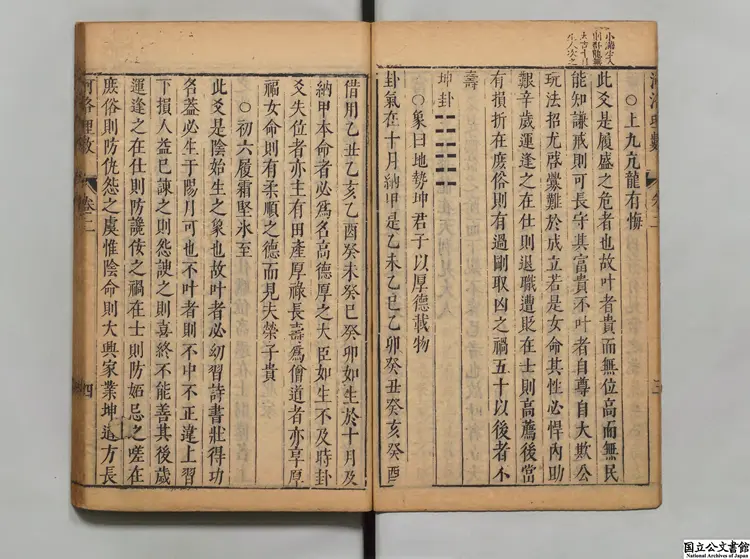 小滿生人
生人次之
河洛理數 卷二 三
○上九亢龍有悔
此爻是履盛之危者也故叶者貴而無位高而無民
能知謙戒則可長守其富貴不叶者自尊自大欺公
玩法招尤啓釁難於成立若是女命其性必悍內助
艱辛歲運逢之在仕則退職遭貶在士則高薦後當
有損折在庶俗則有過剛取凶之禍五十以後者不
壽
坤卦
○象曰地勢坤君子以厚德載物
卦氣在十月納甲是乙未乙巳乙卯癸丑癸亥癸酉
借用乙丑乙亥乙酉癸未癸巳癸卯如生於十月及
納甲本命者必爲名高德厚之大臣如生不及時卦
爻失位者亦主有田產厚祿長壽爲僧道者亦享厚
福女命則有柔順之德而見夫榮子貴
○初六履霜堅氷至
此爻是陰始生之象也故叶者必幼習詩書壯得功
名葢必生于陽月可也不叶者則不中不正違上習
下損人益已諫之則怨諛之則喜終不能善其後歲
運逢之在仕則防讒佞之禍在士則防妬忌之嗟在
庶俗則防仇怨之虞惟陰命則大興家業坤道方長
河洛理數 卷二 四
国立公文書館
National Archives of Japan